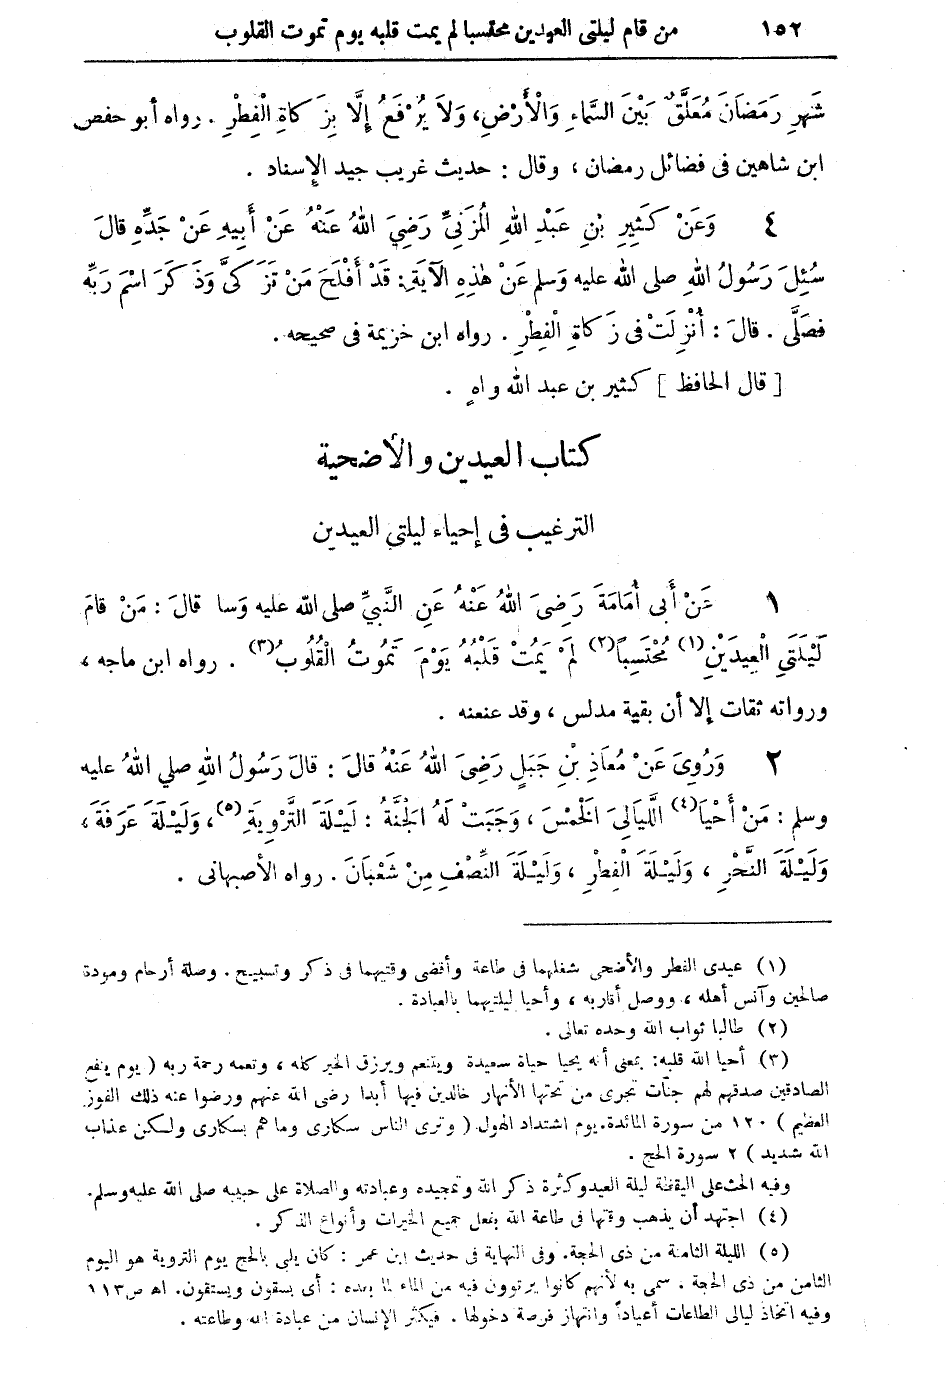 ١٥٢ من قام ليلتى العيدين محتسبا لم يمت قلبه يوم تموت القلوب
شَهْرِ رَمَضَانَ مُعَلَّقٌ بَيْنَ السَّمَاءِ وَالْأَرْضِ، وَلاَ يُرْفَعُ إِلَّا بِزَكَاةِ الْفِطْرِ . رواه أبو حفص
ابن شاهين فى فضائل رمضان ، وقال : حديث غريب جيد الإسناد .
٤ وَعَنْ كَثِيرِ بْنِ عَبْدِ اللهِ الْمُزَنِيِّ رَضِيَ اللهُ عَنْهُ عَنْ أَبِيهِ عَنْ جَدِّهِ قالَ
سُئِلَ رَسُولُ اللهِ صلى الله عليه وَسلم عَنْ هٰذِهِ الآيَةِ: قَدْ أَفْلَحَ مَنْ تَزَكَّى وَذَكَرَ اسْمَ رَبِّهِ
فَصَلَّى . قالَ : أُنْزِلَتْ فى زَكَاةِ الْفِطْرِ . رواه ابن خزيمة فى صحيحه .
[ قال الحافظ ] كثير بن عبد الله واهٍ .
كتاب العيدين والأضحية
الترغيب فى إحياء ليلتى العيدين
١ عَنْ أَبِى أُمَامَةَ رَضِىَ اللهُ عَنْهُ عَنِ النَّبِيِّ صلى الله عليه وَسلم قالَ : مَنْ قامَ
لَيْلَتَىِ الْعِيدَيْنِ(١) مُحْتَسِباً(٢) لَمْ يَمُتْ قَلْبُهُ يَوْمَ تَمُوتُ الْقُلُوبُ(٣) . رواه ابن ماجه ،
ورواته ثقات إلا أن بقية مدلس ، وقد عنعنه .
٢ وَرُوِىَ عَنْ مُعَاذِ بْنِ جَبَلٍ رَضِىَ اللهُ عَنْهُ قالَ : قالَ رَسُولُ اللهِ صلي اللهُ عليه
وسلم : مَنْ أَحْيَا(٤) اللَّيَالِىَ الْخَمْسَ ، وَجَبَتْ لَهُ الْجَنَّةُ : لَيْلَةَ التَّرْوِيَةِ(٥)، وَلَيْلَةَ عَرَفَةَ ،
وَلَيْلَةَ النَّحْرِ ، وَلَيْلَةَ الْفِطْرِ ، وَلَيْلَةَ النِّصْفِ مِنْ شَعْبَانَ . رواه الأصبهانى .
(١) عيدى الفطر والأضحى شغلهما فى طاعة وأفضى وقتيهما فى ذكر وتسبيح . وصلة أرحام ومودة
صالحين وآنس أهله ، ووصل أقاربه ، وأحيا ليلتيهما بالعبادة .
(٢) طالبا ثواب الله وحده تعالى .
(٣) أحيا الله قلبه: بمعنى أنه يحيا حياة سعيدة ويتنعم ويرزق الخير كله ، وتعمه رحمة ربه ( يوم ينفع
الصادقين صدقهم لهم جنّات تجرى من تحتها الأنهار خالدين فيها أبدا رضى الله عنهم ورضوا عنه ذلك الفوز
العظيم ) ١٢٠ من سورة المائدة. يوم اشتداد الهول ( وترى الناس سكارى وما هم بسكارى ولكن عذاب
الله شديد ) ٢ سورة الحج .
وفيه الحث على اليقظة ليلة العيد وكثرة ذكر الله وتمجيده وعبادته والصلاة على حبيبه صلى الله عليه وسلم.
(٤) اجتهد أن يذهب وقتها فى طاعة الله بفعل جميع الخيرات وأنواع الذكر .
(٥) الليلة الثامنة من ذى الحجة. وفى النهاية فى حديث ابن عمر : كان يلبى بالحج يوم التروية هو اليوم
الثامن من ذى الحجة . سمى به لأنهم كانوا يرتوون فيه من الماء لما بعده : أى يسقون ويستقون. اهـ ص١١٣
وفيه اتخاذ ليالى الطاعات أعياداً وانتهاز فرصة دخولها . فيكثر الإنسان من عبادة الله وطاعته .